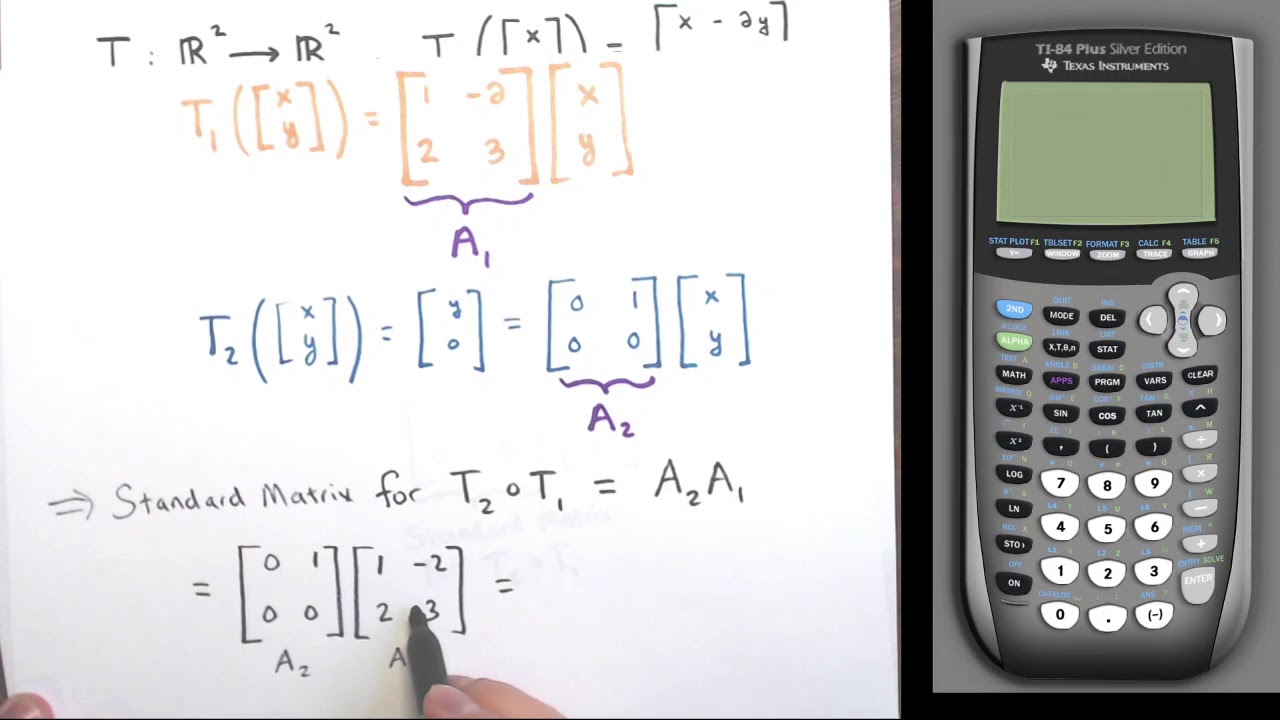 T : ℝ² → ℝ² T([x]) = [x - 2y]
T₁([x y]) = [1 -2 2 3][x y]
A₁
T₂([x y]) = [y 0] = [0 1 0 0][x y]
A₂
⇒ Standard Matrix for T₂∘T₁ = A₂A₁
= [0 1 0 0][1 -2 2 3] =
A₂ A
TI-84 Plus Silver Edition
TEXAS INSTRUMENTS
STAT PLOT F1 TBLSET F2 FORMAT F3 CALC F4 TABLE F5
Y= WINDOW ZOOM TRACE GRAPH
QUIT INS
2ND MODE DEL
A-LOCK LINK LIST
ALPHA X,T,θ,n STAT
TEST A ANGLE B DRAW C DISTR
MATH APPS PRGM VARS CLEAR
MATRIX D SIN⁻¹ E COS⁻¹ F TAN⁻¹ G π H
x⁻¹ SIN COS TAN ^
x² , ( ) ÷
LOG 7 8 9 ×
LN 4 5 6 −
RCL X L1 Y L2 Z L3 MEM "
STO› 1 2 3 +
OFF CATALOG ANS ? ENTRY SOLVE
ON 0 . (−) ENTER